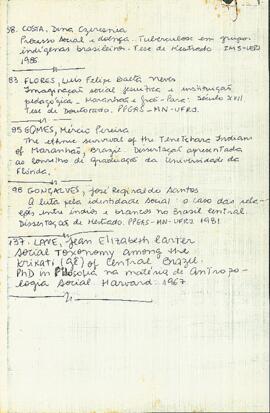 58. COSTA, Dina Czeresnia
Processo social e doença. Tuberculose em grupos
indígenas brasileiros. Tese de Mestrado. IMS-UERJ
1986
83. FLORES, Luis Felipe Baêta Neves
Imaginação social jesuítica e instituição
pedagógica - Maranhão e Grão-Pará: Século XVII
Tese de Doutorado. PPGAS-MN-UFRJ.
95 GOMES, Mércio Pereira
The ethnic survival of the Tenetehara Indians
of Maranhão, Brazil. Dissertação apresentada
ao conselho de graduação da Universidade da
Flórida.
98 GONÇALVES, José Reginaldo Santos
A luta pela identidade social: o caso das rela-
ções entre índios e brancos no Brasil Central.
Dissertação de Mestrado. PPGAS-MN-UFRJ 1981.
137. LAVE, Jean Elizabeth Carter
Social Toxonomy among the
Krikati (gê) of Central Brazil.
PhD in Filosofia na matéria de Antropo-
logia Social Harvard. 1967